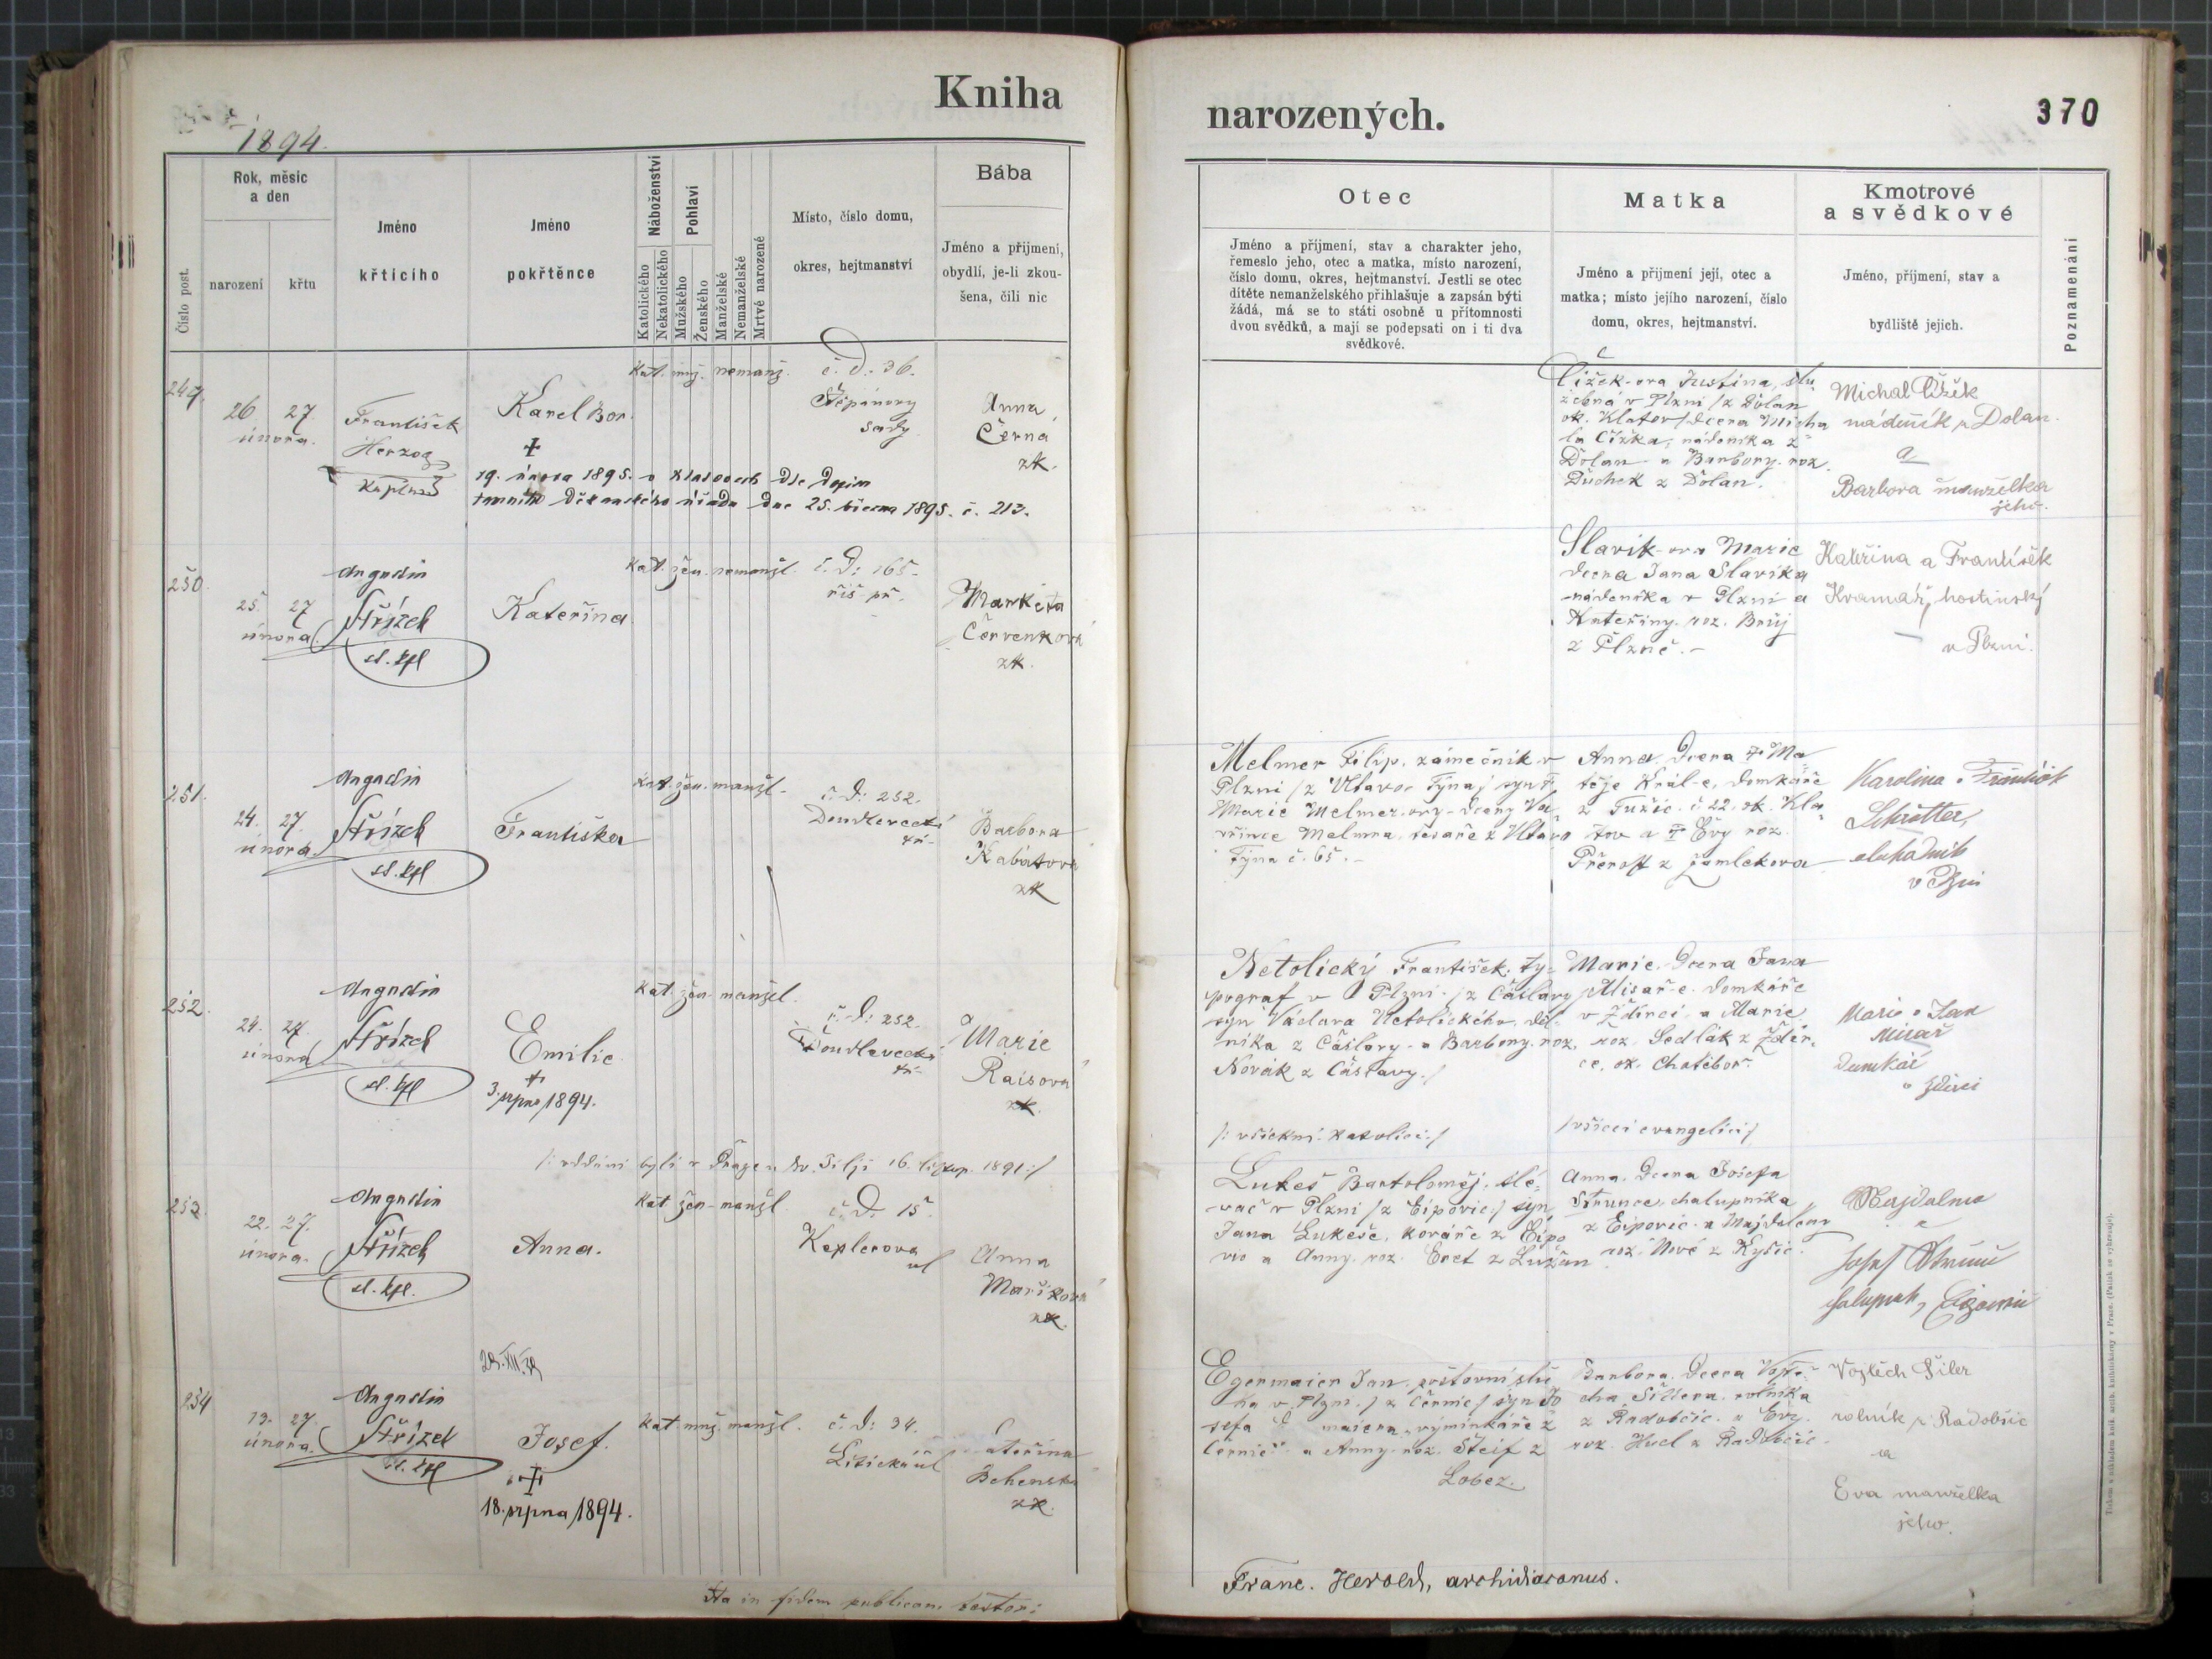 Kniha
narozených.
370
1894.
Číslo post.
Rok, měsíc
a den
narození
křtu
Jméno
křtícího
Jméno
pokřtěnce
Náboženství
Katolického
Nekatolického
Pohlaví
Mužského
Ženského
Manželské
Nemanželské
Mrtvé narozené
Místo, číslo domu,
okres, hejtmanství
Bába
Jméno a přijmení,
obydlí, je-li zkou-
šena, čili nic
Otec
Jméno a příjmení, stav a charakter jeho,
řemeslo jeho, otec a matka, místo narození,
číslo domu, okres, hejtmanství. Jestli se otec
dítěte nemanželského přihlašuje a zapsán býti
žádá, má se to státi osobně u přítomnosti
dvou svědků, a mají se podepsati on i ti dva
svědkové.
Matka
Jméno a přijmení její, otec a
matka; místo jejího narození, číslo
domu, okres, hejtmanství.
Kmotrové
a svědkové
Jméno, příjmení, stav a
bydliště jejich.
Poznamenání
249.
26 27
února.
František
Herzog
Kaplan
Karel Bor.
+
19. února 1895. v Klatovech dle dopisu
tamního děkanského úřadu dne 25. března 1895. č. 213.
Kat. muž. nemanž.
č. d: 36.
Štěpánovy
sady
Anna
Černá
zk.
Čížek-ova Justina, slu
žebná v Plzni /z Dolan
ok. Klatov/ dcera Micha
la Čížka, nádeníka z
Dolan a Barbory roz.
Duchek z Dolan.
Michal Čížek
nádeník z Dolan.
a
Barbora manželka
jeho.
250.
25. 27
února
Augustin
Střízek
st. kpl
Kateřina
Kat. žen. nemanžl.
č. d: 165
říš. př.
Markéta
Červenková
zk.
Slavík-ova Marie
dcera Jana Slavíka
nádeníka v Plzni a
Kateřiny roz.
z Plzně.-
Kateřina a František
Kramář, hostinský
v Plzni.
251.
24. 27.
února.
Augustin
Střízek
st. kpl
Františka
Kat. žen. manžl.
č. d: 252.
Doudlevecká
tř.
Barbora
Kabátová
zk
Melmer Filip, zámečník v
Plzni /z Vltavo-Týna/ syn †
Marie Melmer-ovy dcery Va-
vřince Melmra, tesaře z Vltavo
Týna č. 65.-
Anna, dcera † Ma-
těje Král-e, domkáře
z Tužic č. 22. ok. Kla-
tov a † Evy roz.
z Žamlekova
Karolina a František
Schrötter,
v Plzni
252.
24. 27.
února
Augustin
Střízek
st. kpl
Emilie
+
3. srpna 1894.
Kat. žen. manžel.
č. d: 252.
Doudlevecká
tř.
Marie
Raisová
zk.
Netolický František, ty-
pograf v Plzni /z Čáslavy
syn Václava Netolického, děl-
níka z Čáslavy a Barbory roz.
Novák z Čáslavy./
/: všickni katolíci:/
Marie, dcera Jana
Misař-e, domkáře
v Ždírci a Marie
roz. Sedlák z Ždír-
ce, ok. Chotěboř.
/všicci evangelíci/
Marie a Jan
Misař
Domkář
v Ždírci
/: oddáni byli v Praze u sv. Jiljí 16. listop. 1891:/
253.
22. 27.
února.
Augustin
Střízek
st. kpl.
Anna.
Kat. žen. manžl.
č. d: 15.
Keplerova
ul
Anna
Maříková
zk.
Lukeš Bartoloměj, slé-
vač v Plzni /z Ejpovic:/ syn
Jana Lukeše, kováře z Ejpo
vic a Anny roz. Eret z Lužan
Anna, dcera Josefa
Strunce, chalupníka
z Ejpovic a Majdaleny
roz. Nové z Kyšic.
Majdalena
a
Josef Strunc
254
13. 27.
února.
Augustin
Střízek
st. kpl
Josef.
+
18. srpna 1894.
Kat. muž. manžl.
č. d: 34.
Litická ul
Kateřina
Behenská
zk.
Egermaier Jan, poštovní slu
ha v Plzni /z Černic/ syn Jo
sefa E maiera, výminkáře z
Černic a Anny roz. Steif z
Lobez.
Barbora, dcera Vojtě-
cha Šillera, rolníka
z Radobčic a Evy
roz. Hucl z Radobčic.
Vojtěch Šiler
rolník z Radobčic
a
Eva manželka
jeho.
Ita in fidem publicam testor:
Franc. Herold, archidiaconus.